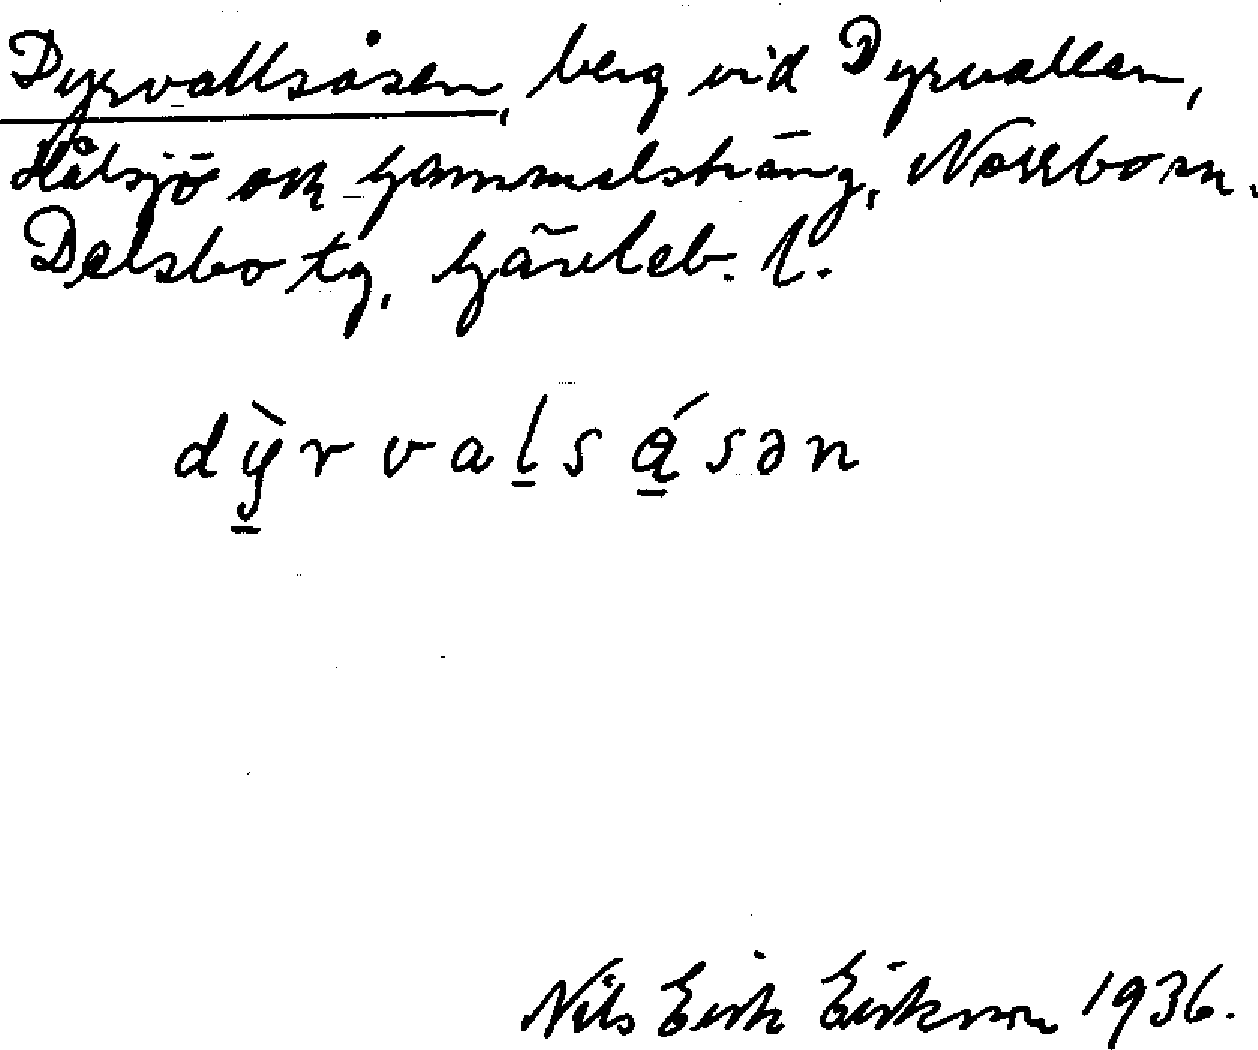 Dyrvallsåsen, berg vid Dyrvallen,
Hålsjö och Gammelsträng, Norrbo sn.
Delsbo tg, Gävleb. l.
dỳ̠rval̠są̠́sən
Nils Erik Eriksson 1936.